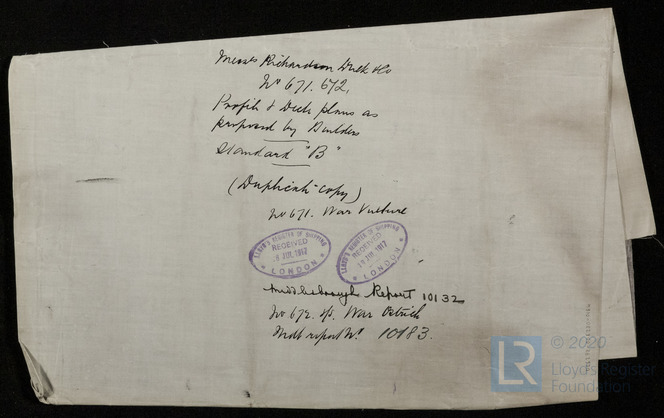 Messrs Richardson Duck & Co
No 671. 672,
Profile & Deck plans as
proposed by Builders
Standard "B"
(Duplicate copy)
No 671. War Vulture
LLOYD'S REGISTER OF SHIPPING
RECEIVED
JUL. 1917
LONDON
LLOYD'S REGISTER OF SHIPPING
RECEIVED
JUL. 1917
LONDON
Middlesbrough Report 10132
No 672. War Ostrich
Mdb report No. 10183.
LR
© 2020
Lloyd's Register
Foundation